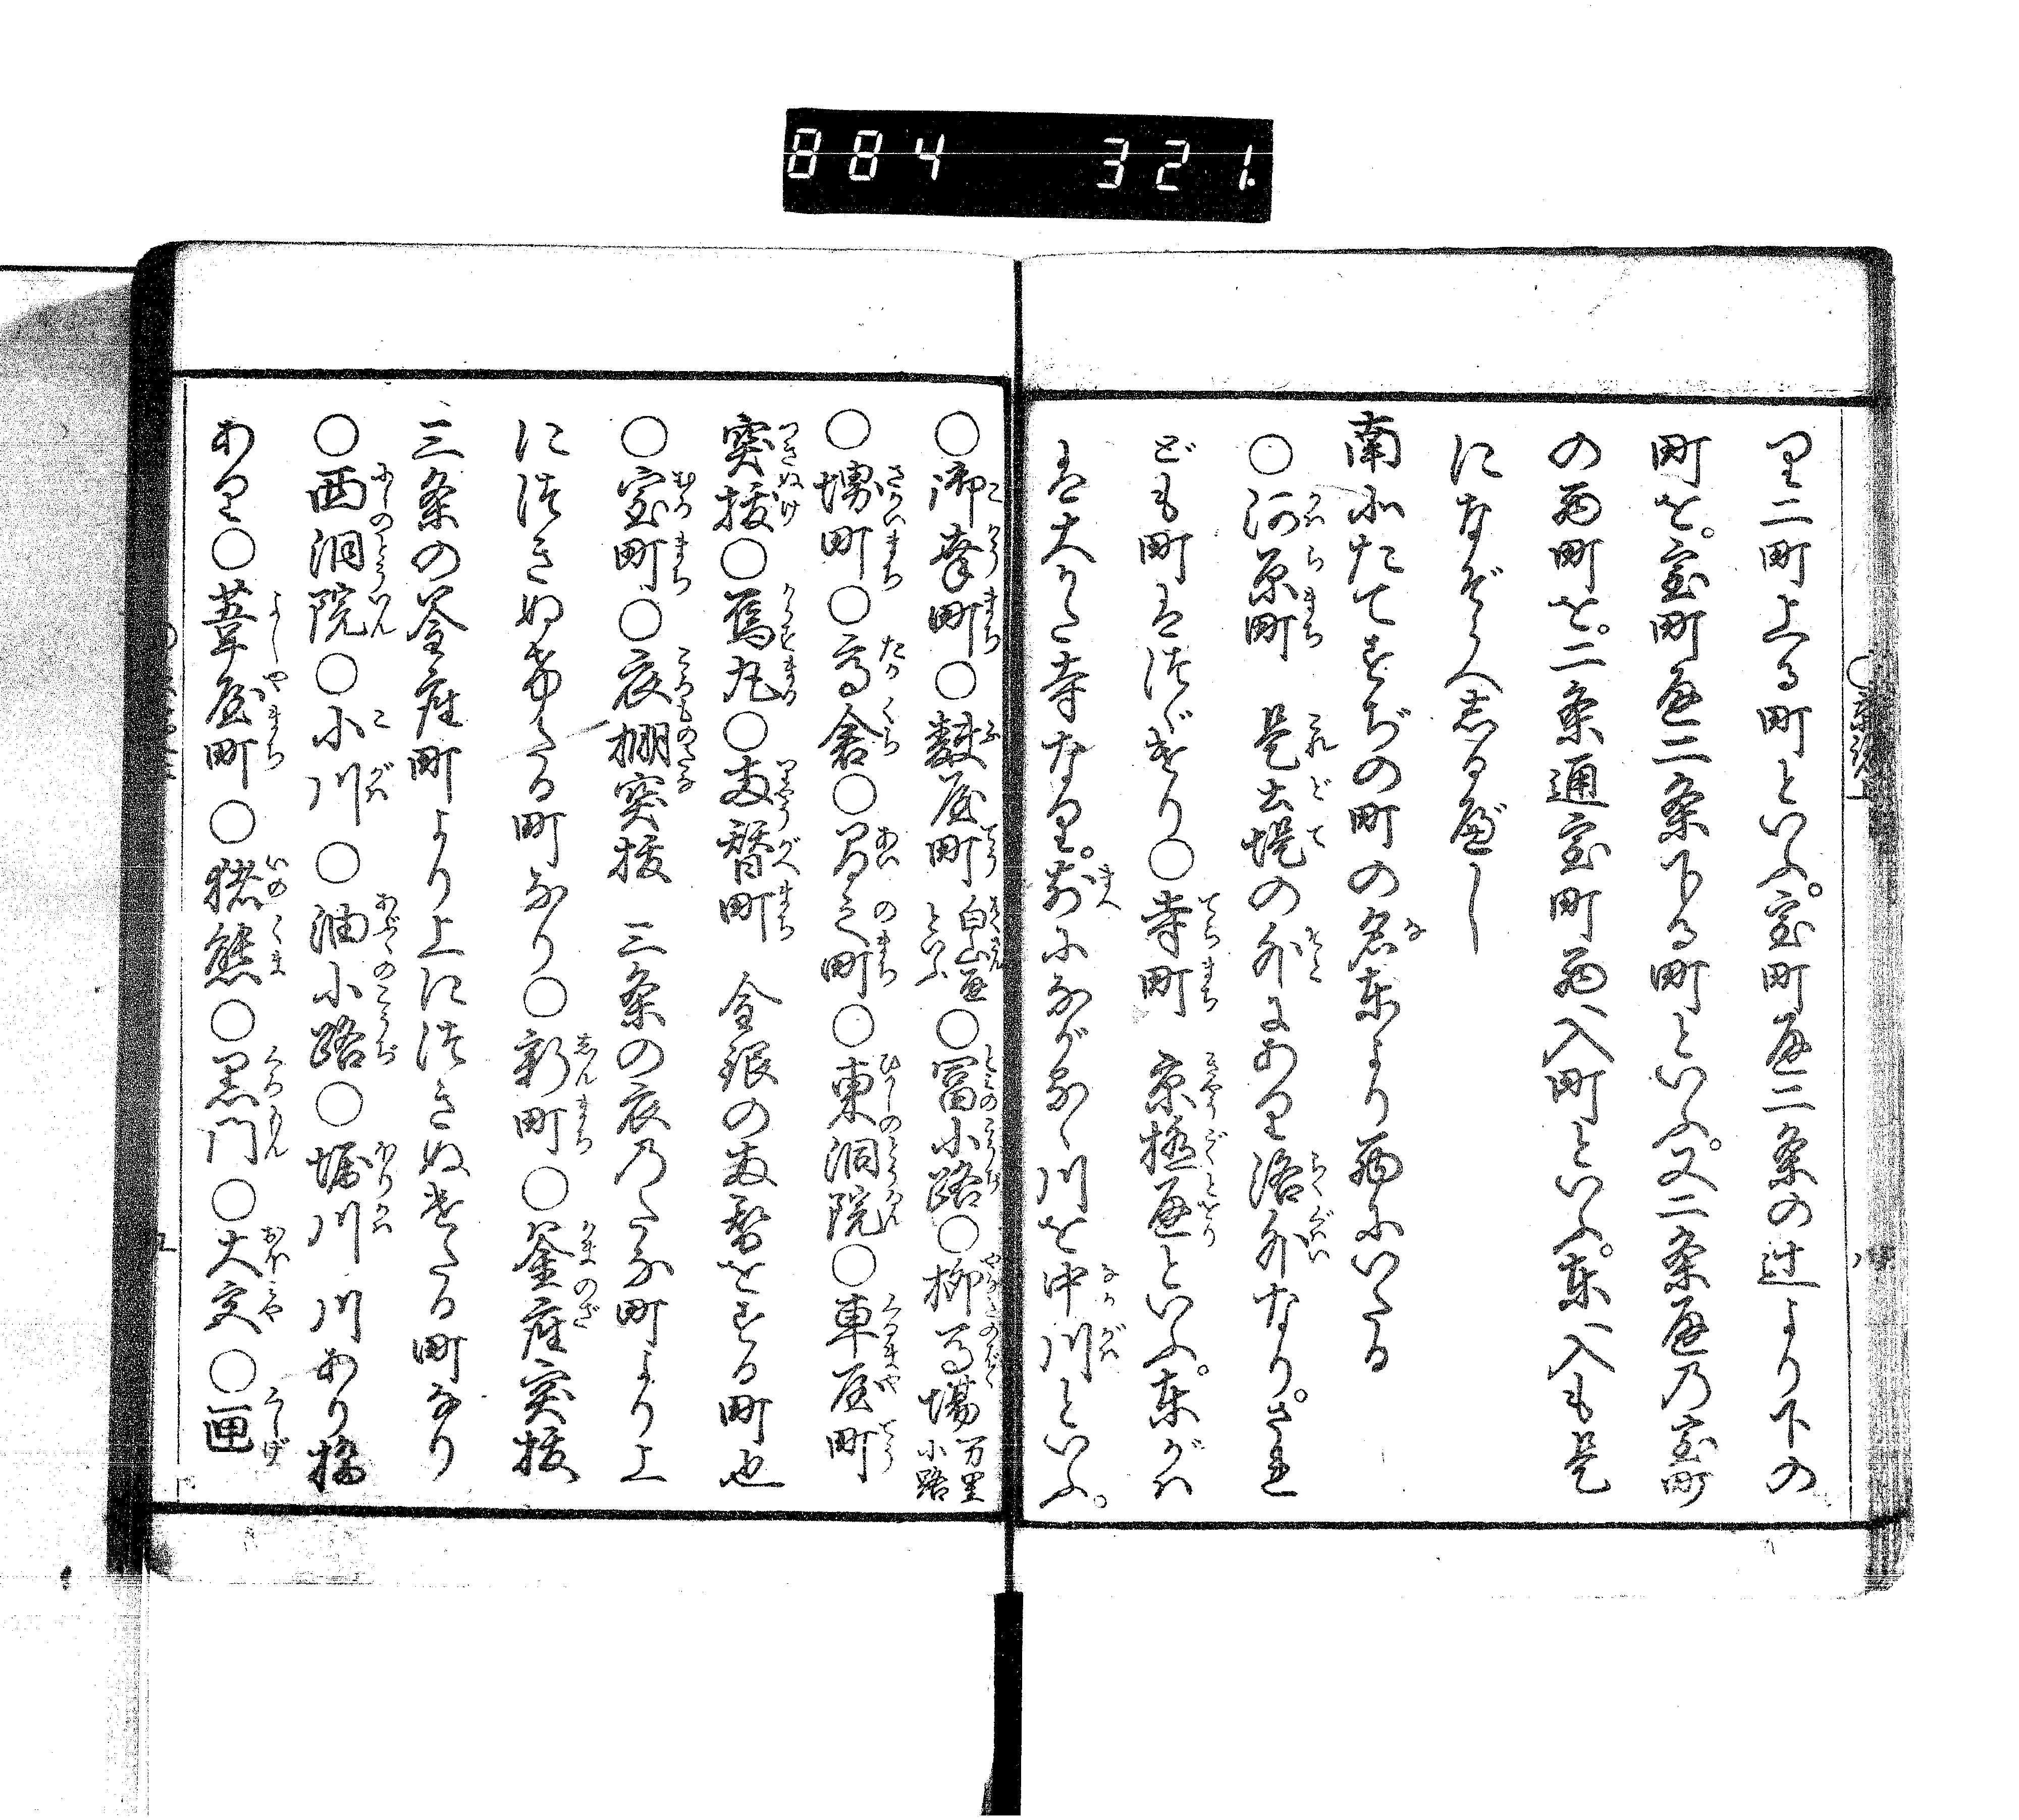 884 321
り二町上る町といふ。室町通二条の辻より下の
町を。室町通二条下る町といふ。又二条通乃室町
の西町を。二条通室町西へ入町といふ。東へ入も是
になぞらへ志るべし
南北たてすぢの町の名東より西にいたる
○河原町 是土堤の外にあり洛外なり。され
ども町はつゞけり○寺町 京極通といふ。東がハ
は大かた寺なり。前にながるゝ川を中川といふ。
○御幸町○麩屋町 白山通といふ○冨小路○柳馬場 万里小路
○堺町○高倉○間之町○東洞院○車屋町
突抜○烏丸○両替町 金銀の両替をする町也
○室町○衣棚突抜 三条の衣乃たな町より上
につきぬけたる町なり○新町○釜座突抜
三条の釜座町より上につきぬけたる町なり
○西洞院○小川○油小路○堀川 川あり橋
あり○葦屋町○猪熊○黒門○大宮○匣